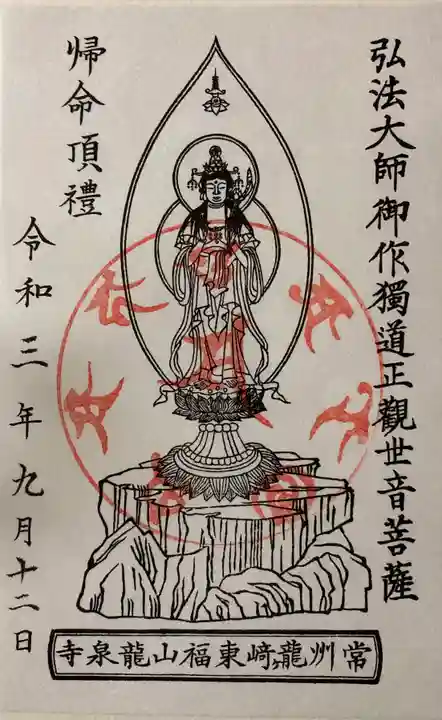 弘法大師御作獨道正觀世音菩薩
帰命頂禮
令和三年九月十二日
常州龍ヶ﨑東福山龍泉寺